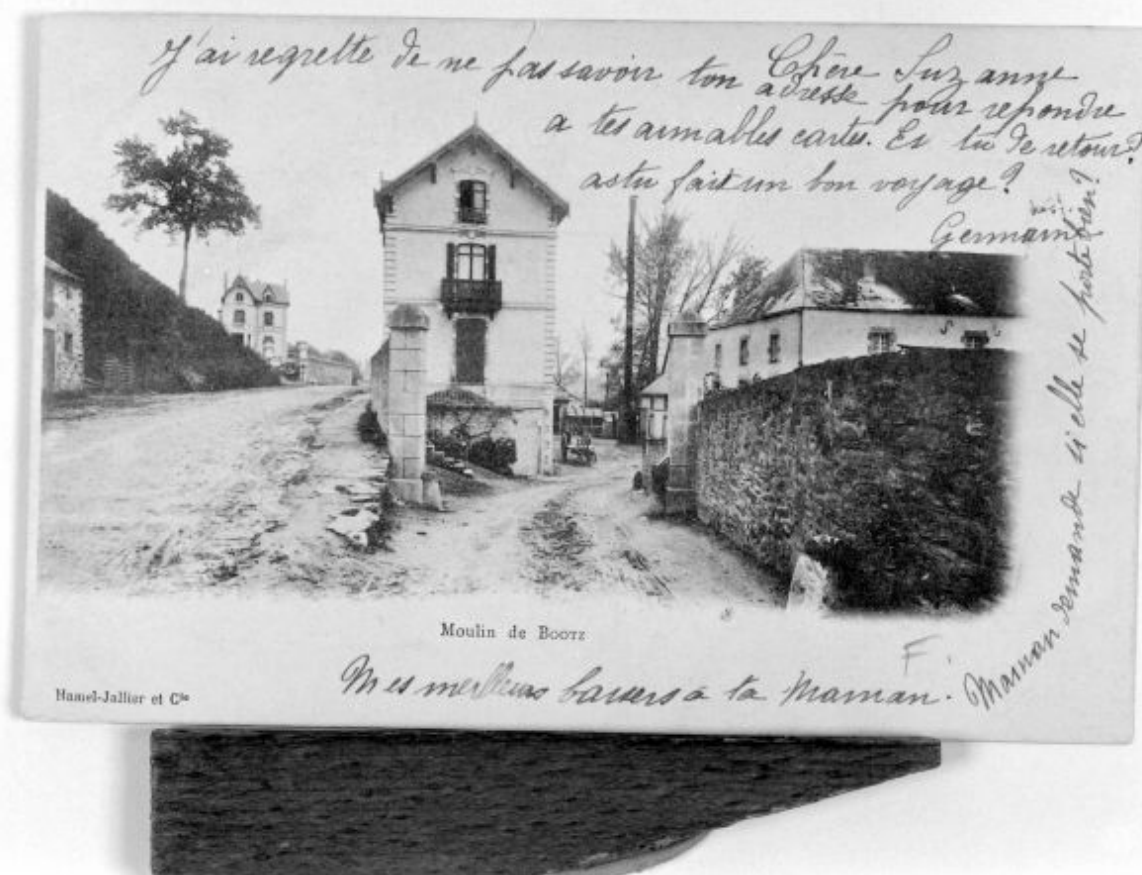 Chère Suzanne
J'ai regrette de ne pas savoir ton adresse pour repondre
a tes aimables cartes. Es tu de retour?
as tu fait un bon voyage?
Germaine
Maman demande si elle se porte bien?
Moulin de Bootz
F.
Mes meilleurs baisers à ta Maman.
Hamel-Jallier et Cie